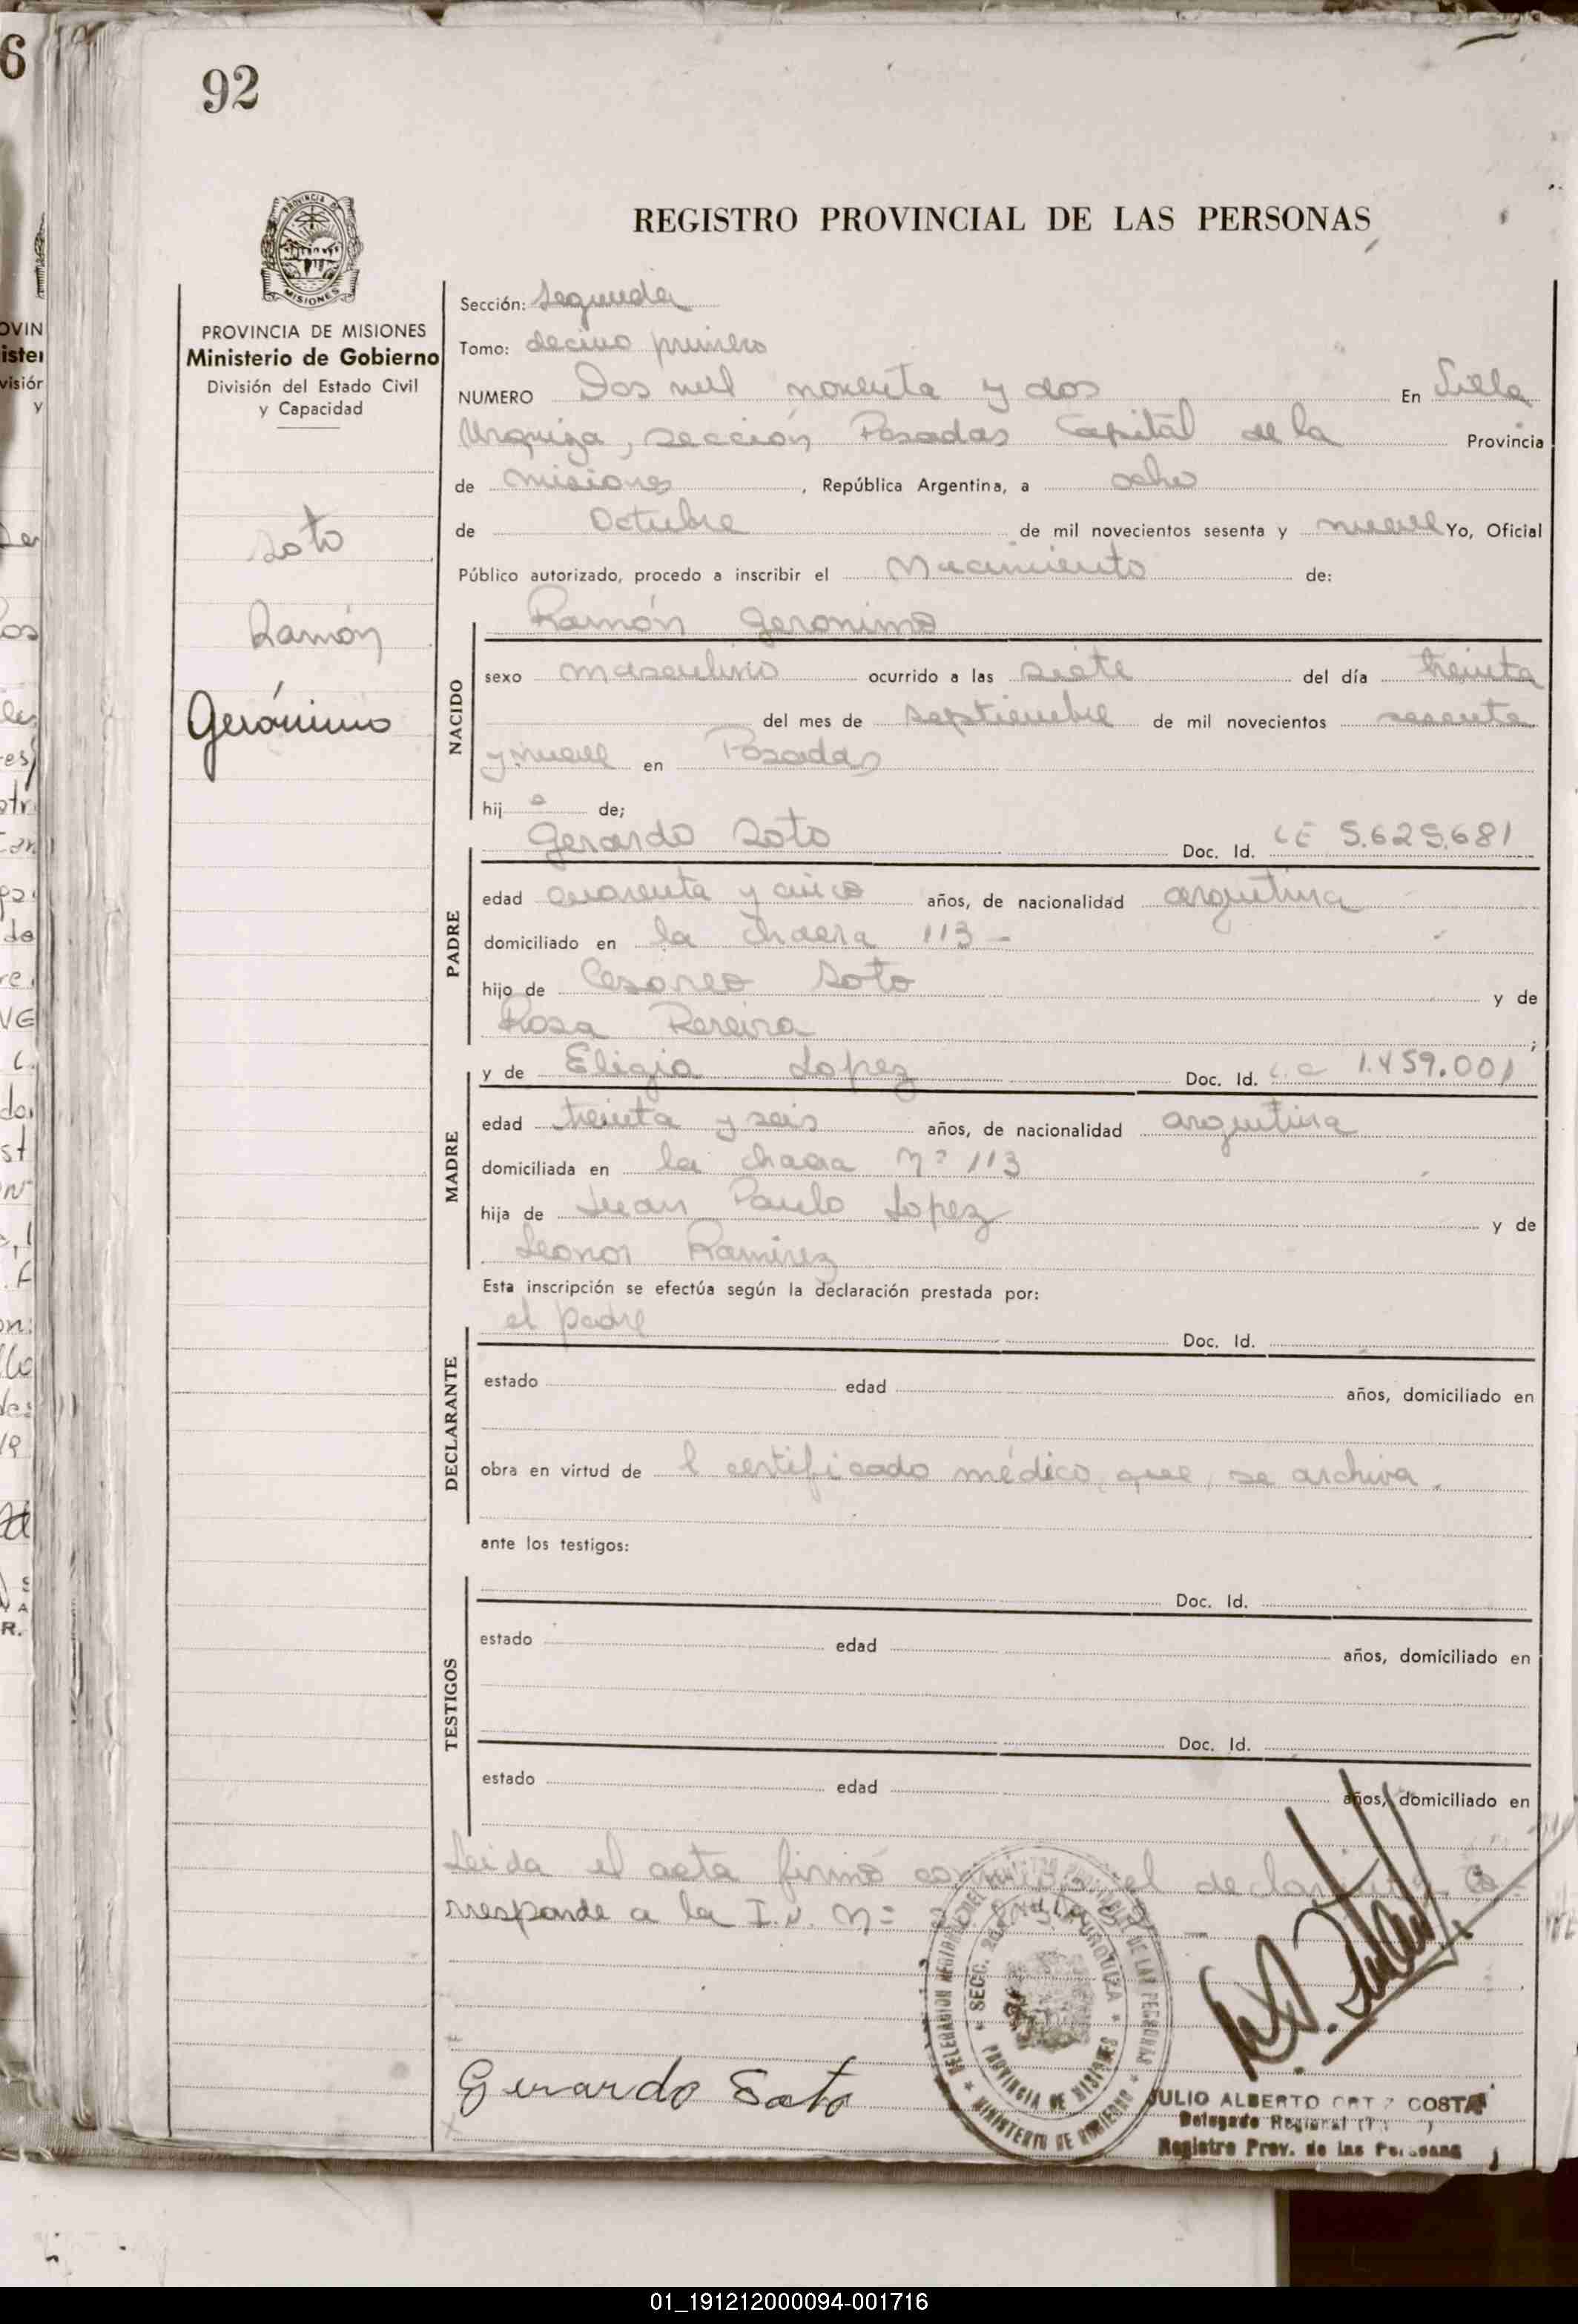 92
REGISTRO PROVINCIAL DE LAS PERSONAS
PROVINCIA DE MISIONES
Ministerio de Gobierno
División del Estado Civil
y Capacidad
Soto
Ramón
Gerónimo
Sección: Segunda
Tomo: decimo primero
NUMERO Dos mil noventa y dos En Villa
Urquiza, sección Posadas Capital de la Provincia
de Misiones, República Argentina, a ocho
de Octubre de mil novecientos sesenta y nueve Yo, Oficial
Público autorizado, procedo a inscribir el Nacimiento de:
Ramón Geronimo
NACIDO
sexo masculino ocurrido a las siete del día treinta
del mes de septiembre de mil novecientos sesenta
y nueve en Posadas
hij o de;
Gerardo Soto Doc. Id. 5.625.681
PADRE
edad cuarenta y cinco años, de nacionalidad argentina
domiciliado en la chacra 113 -
hijo de Cesareo Soto y de
Rosa Pereira ;
y de Eligia Lopez Doc. Id. L.C 1.459.001
MADRE
edad treinta y seis años, de nacionalidad argentina
domiciliada en la chacra Nº 113
hija de Juan Paulo Lopez y de
Leonor Ramirez
Esta inscripción se efectúa según la declaración prestada por:
el padre Doc. Id.
DECLARANTE
estado edad años, domiciliado en
obra en virtud de l certificado médico, que se archiva.
ante los testigos:
Doc. Id.
TESTIGOS
estado edad años, domiciliado en
Doc. Id.
estado edad años, domiciliado en
Leida el acta firmó conmigo el declarante. Co-
rresponde a la I.N. Nº
SECC. 2da. VILLA URQUIZA
PROVINCIA DE MISIONES
MINISTERIO DE GOBIERNO
Gerardo Soto
JULIO ALBERTO COSTA
Delegado Regional
Registro Prov. de las Personas
01_191212000094-001716